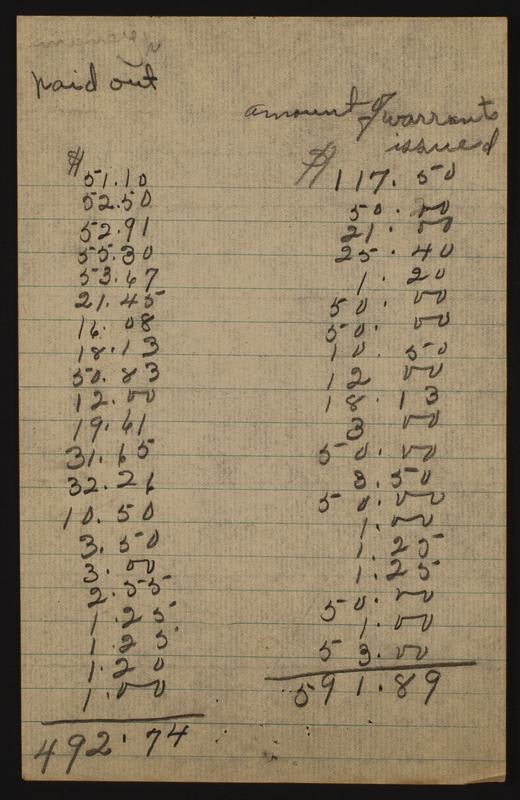 paid out
$ 51.10
52.50
52.91
55.30
53.67
21.45
16.08
18.13
50.83
12.00
19.61
31.65
32.26
10.50
3.50
3.00
2.55
1.25
1.25
1.20
1.00
492.74
amount of warrants
issued
$117.50
50.00
21.00
25.40
1.20
50.00
50.00
10.50
12 00
18.13
3 00
50.00
8.50
50.00
1.00
1.25
1.25
50.00
1.00
53.00
591.89